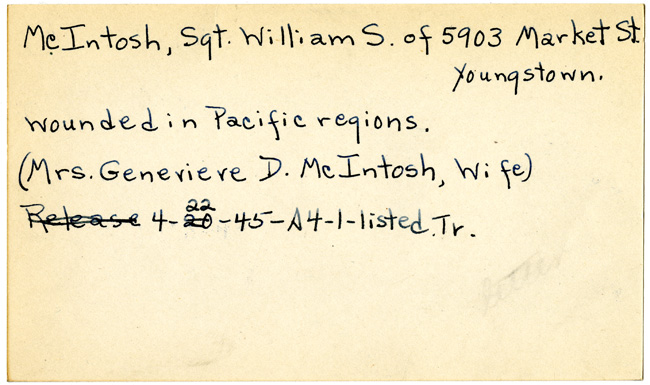 McIntosh, Sgt. William S. of 5903 Market St.
Youngstown.
wounded in Pacific regions.
(Mrs. Genevieve D. McIntosh, Wife)
Release 4-22-45-A4-1-listed.Tr.